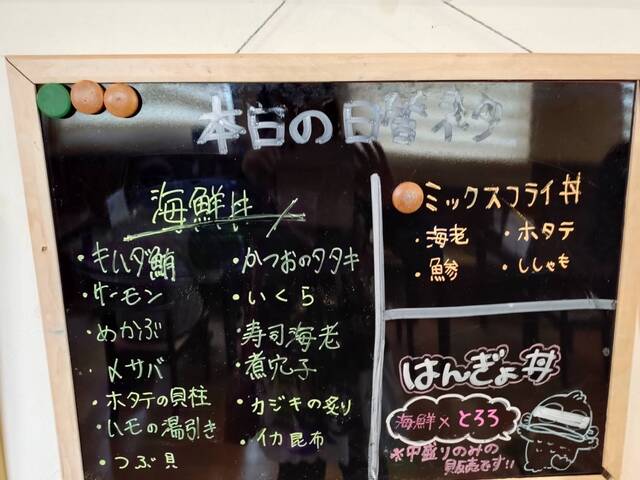 本日の日替ネタ
海鮮丼
・キハダ鮪
・サーモン
・めかぶ
〆サバ
・ホタテの貝柱
・ハモの湯引き
・つぶ貝
・かつおのタタキ
・いくら
・寿司海老
・煮穴子
・カジキの炙り
・イカ昆布
ミックスフライ丼
・海老
・ホタテ
・鯵
・ししゃも
はんぎょ丼
海鮮×とろろ
※中盛りのみの
販売です!!